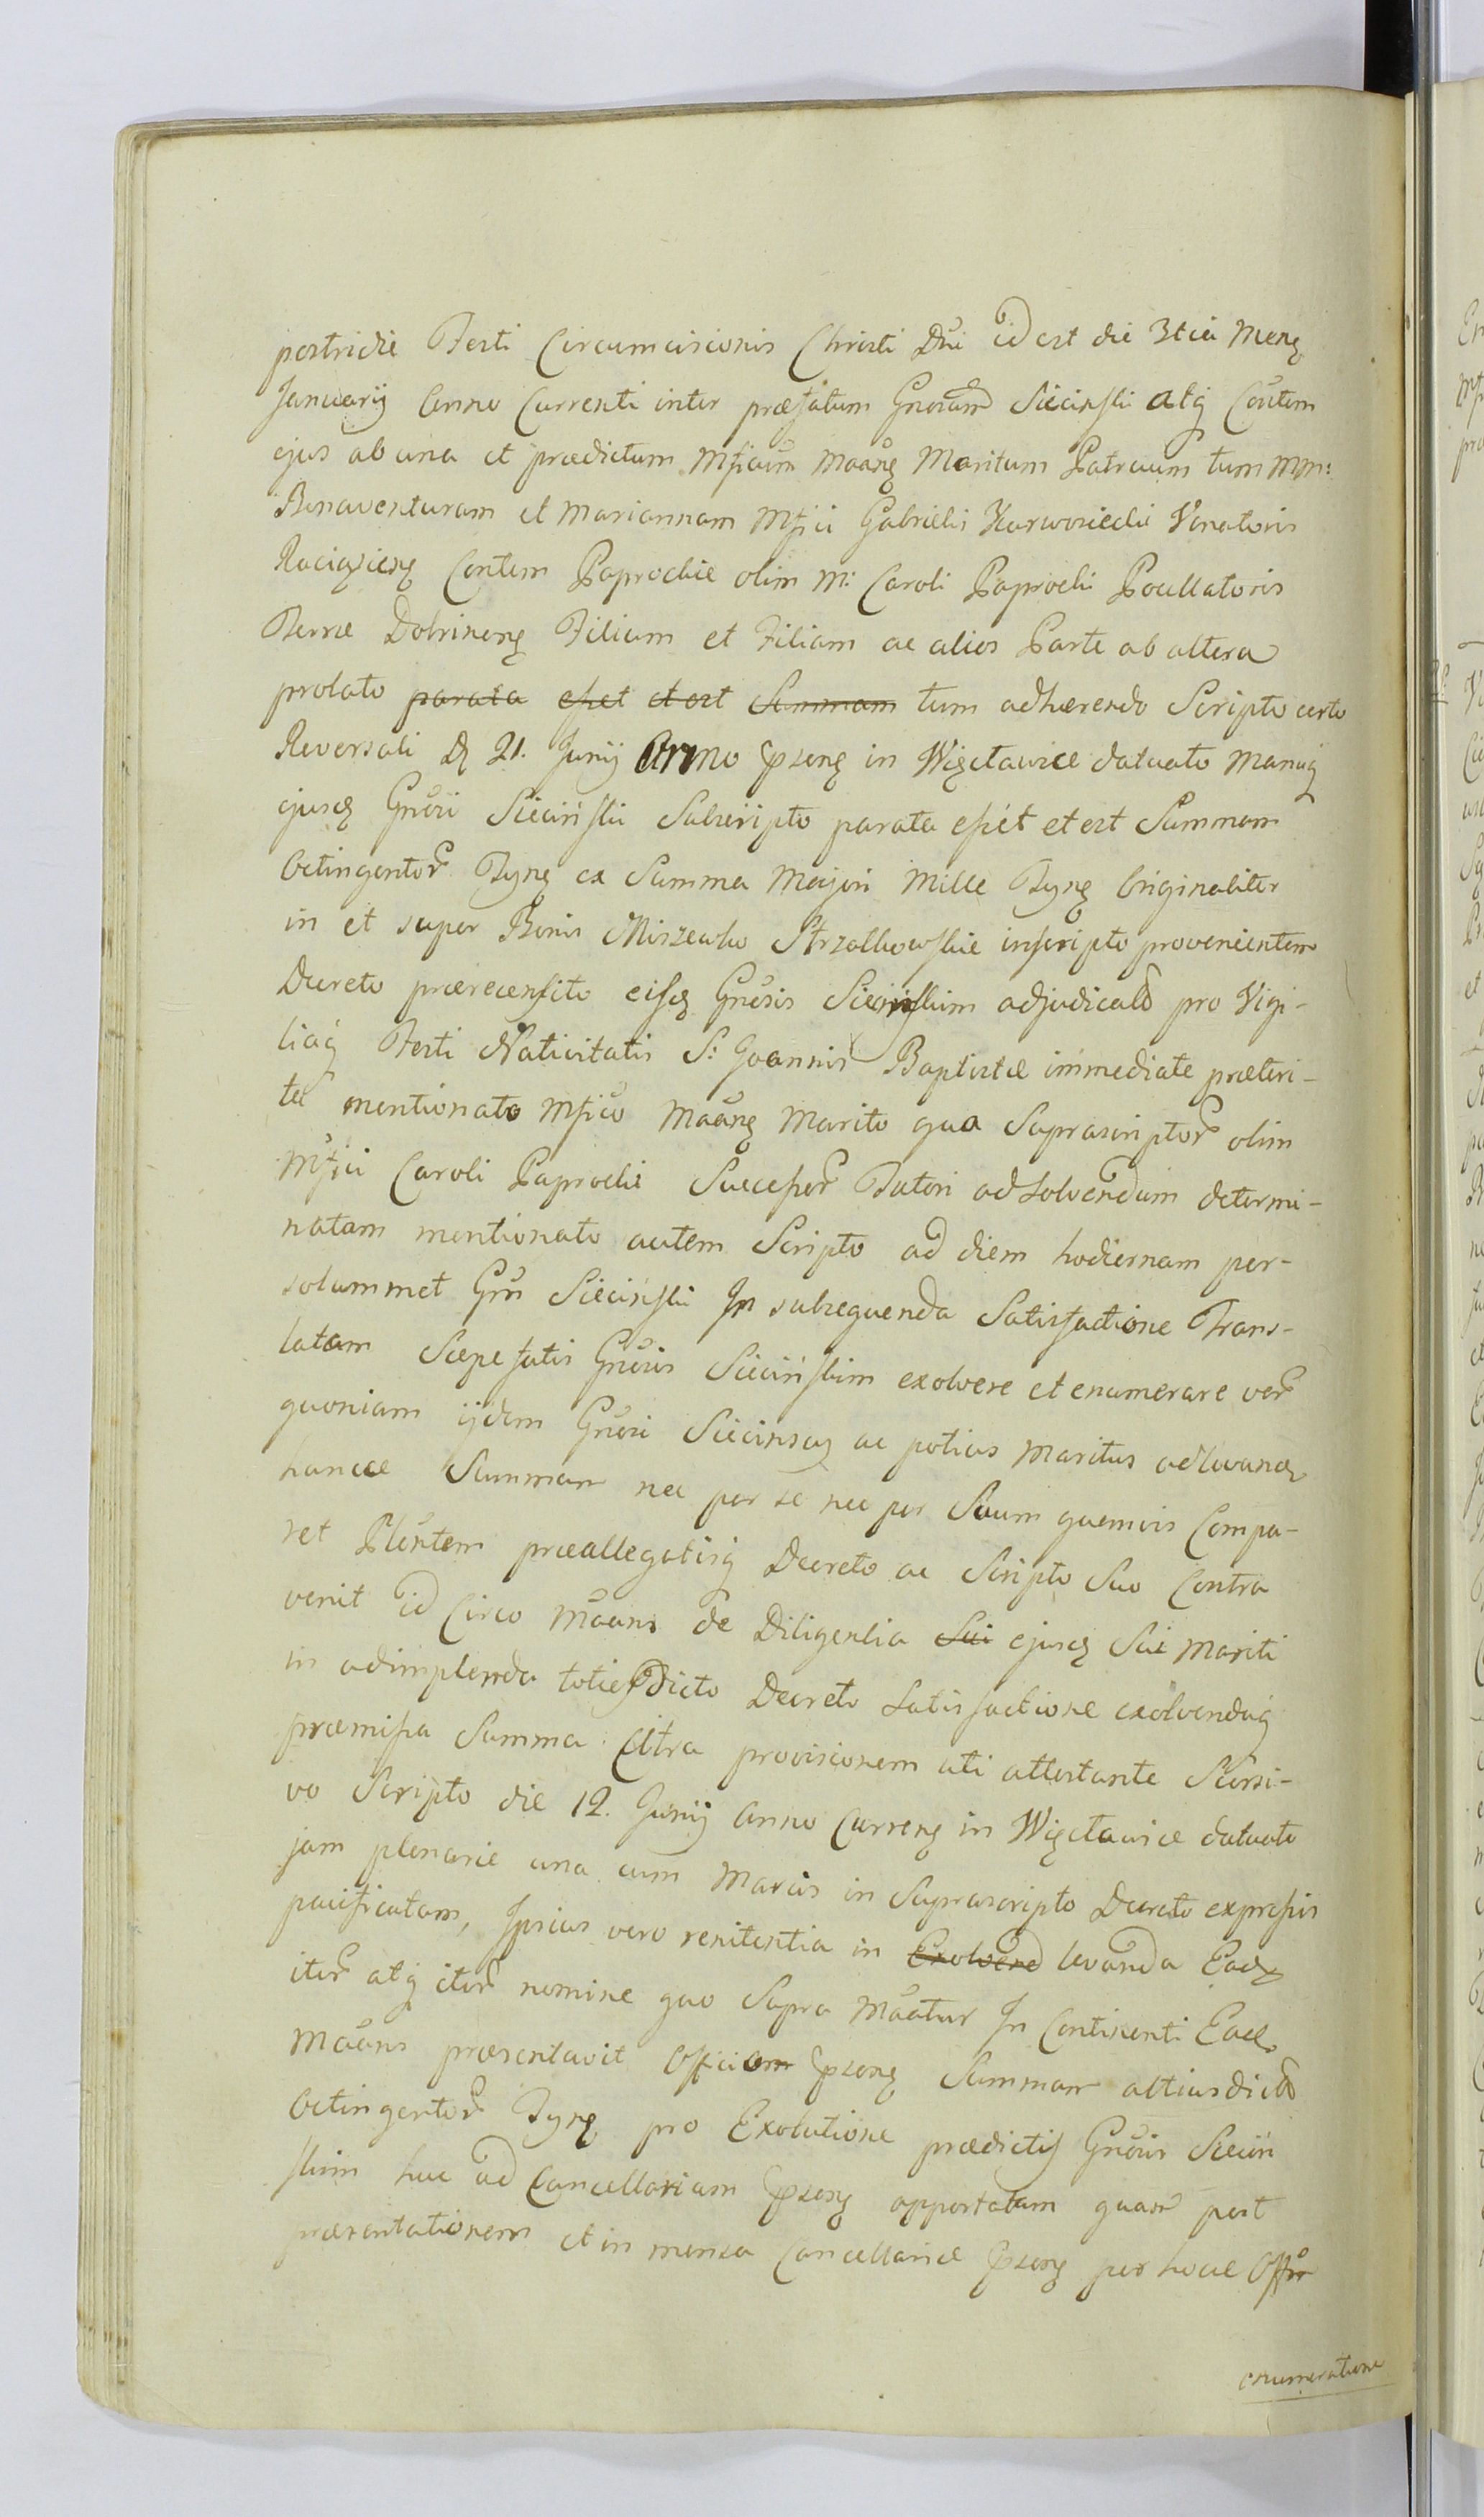 postridie Festi Circumcisionis Christi Dni id est die 3tia Mens
Januarij Anno Currenti inter præfatum Gnosum Siecinski atq Contem
ejus ab una et prædictum Mficum Maans Maritum Patruum tum MM:
Bonaventuram et Mariannam Mfici Gabrielis Karwosiecki Venatoris
Raciąziens Contem Paprockie olim M: Caroli Paprocki Pocillatoris
Terræ Dobrinens Filium et Filiam ac alios Parte ab altera
prolato parata esset et est Summam tum adhærendo Scripto certo
Reversali D 21. Junij Anno Psens in Więcławice datuato Manuq
ejusd Gnosi Siecinski Subscripto parata esset et est Summam
Octingentor Tynf ex Summa Majori Mille Tynf Originaliter
in et super Bonis Miszewko Strzalkowskie inscripto provenientem
Decreto prærecensito eisd Gnosis Siecinskim adjudicatd pro Vigi-
liaq Festi Nativitatis S: Joannis Baptistæ immediate præteri-
tæ mentionato Mfico Maans Marito qua Suprascriptor olim
Mfici Caroli Paprocki Successor Tutori ad Solvendum determi-
natam mentionato autem Scripto ad diem hodiernam per-
solummet Gnos Siecinski In subsequenda Satisfactione Trans-
latam Sæpe fatis Gnosis Siecinskim exolvere et enumerare ver
quoniam ijdem Gnosi Siecinscy ac potius Maritus ad levand
hancce Summam nec per se nec per Suum quemvis Compa-
ret Plentem præallegatisq Decreto ac Scripto Suo Contra
venit id Circo Maans de Diligentia Sui ejusd Sui Mariti
in adimplenda toties Dicto Decreto Satisfactione exolvendaq
præmissa Summa Citra provisionem uti attestante Scorsi-
vo Scripto die 12. Junij Anno Currens in Więcławice datuato
jam plenarie una cum Marcis in Suprascripto Decreto expressis
pacificatam, Ipsius vero renitentia in Exolvend levanda Ead
iter atq iter nomine quo Supra Maatur In Continenti Ead
Maans præsentavit Officiom Psens Summam altius dictd
Octingentor Tynf pro Exolutione prædictis Gnosis Siecin
skim huc ad Cancellariam Psens apportatam quam post
præsentationem et in mensa Cancellariæ Psens per hocce Offm
enumeratione